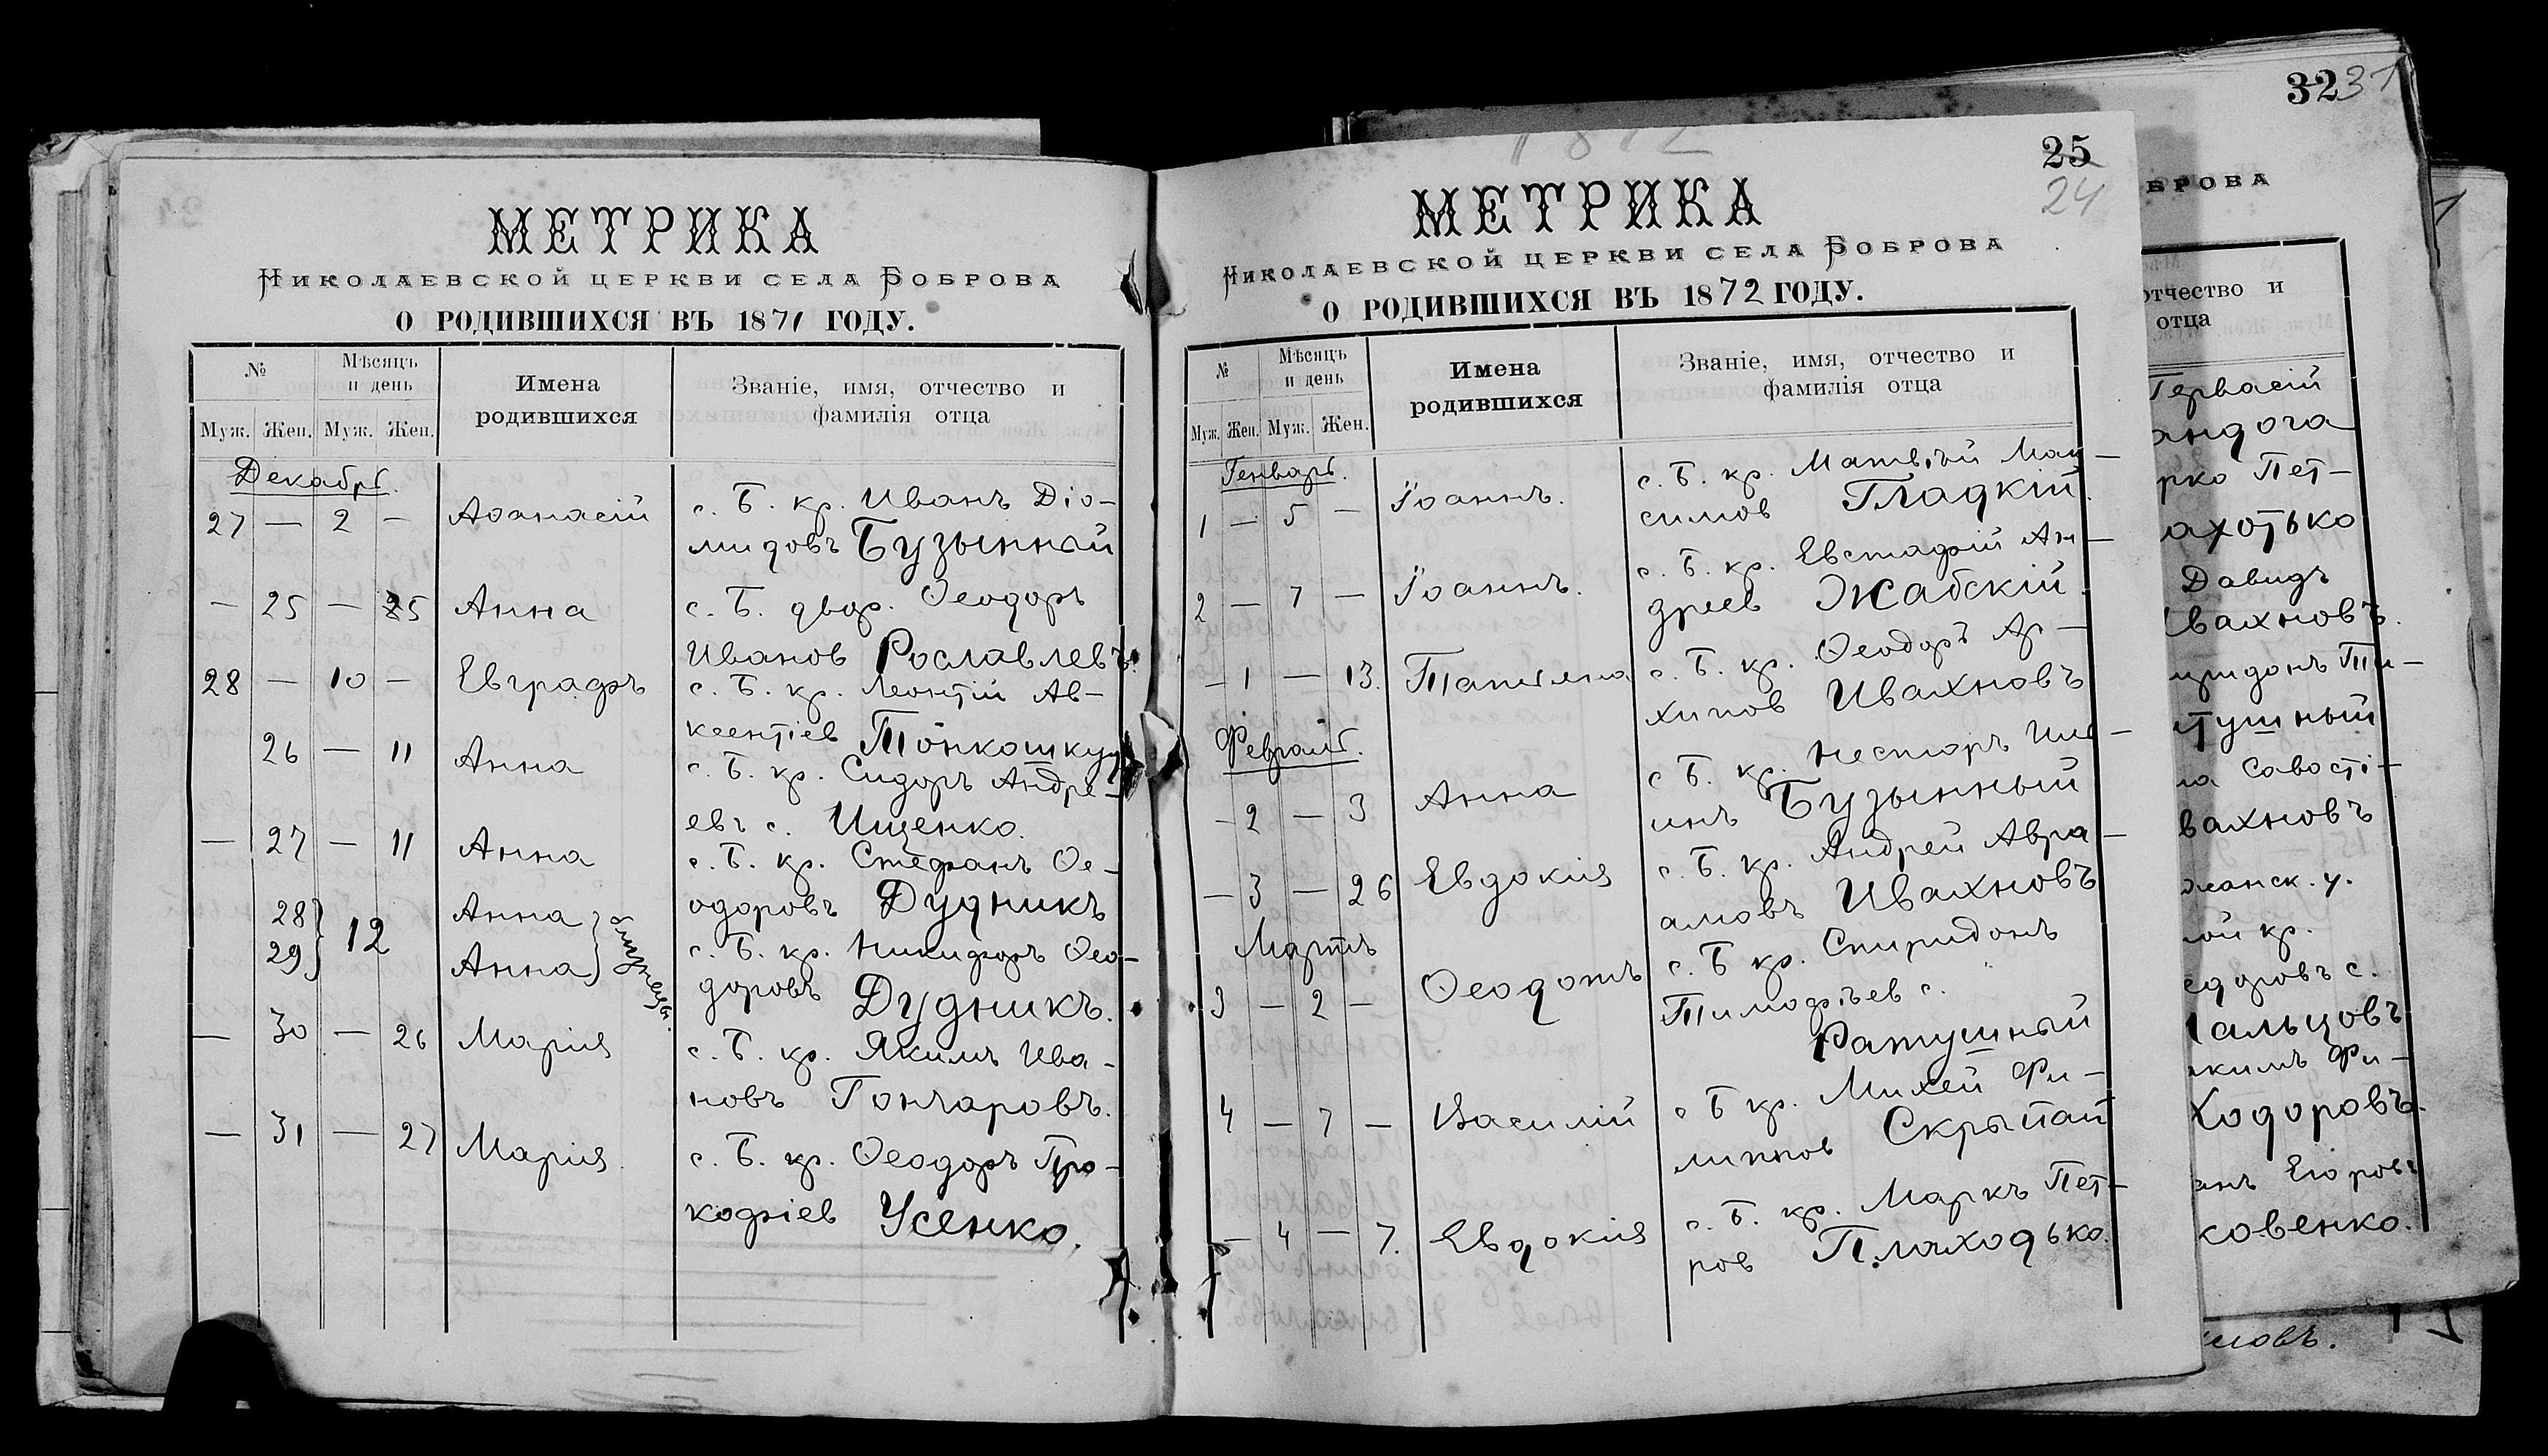 МЕТРИКА
Николаевской церкви села Боброва
О РОДИВШИХСЯ ВЪ 1871 ГОДУ.
№
Мѣсяцъ и день
Имена родившихся
Званіе, имя, отчество и фамилія отца
Муж. Жен. Муж. Жен.
Декабрь.
27 — 2 — Аѳанасій с. Б. кр. Иванъ Діо-
мидовъ Бузынный
— 25 — 5 Анна с. Б. двор. Ѳеодоръ
Иванов Рославлевъ.
28 — 10 — Евграфъ с. Б. кр. Леонтій Ав-
ксентіев Тонкошкур
26 — 11 Анна с. Б. кр. Сидоръ Андре-
евъ с. Ищенко.
— 27 — 11 Анна с. Б. кр. Стефанъ Ѳе-
одоровъ Дудникъ
28 } 12 Анна }
29 } Анна } близнецы.
с. Б. кр. Никифоръ Ѳео-
доровъ Дудникъ.
— 30 — 26 Марія с. Б. кр. Якимъ Ива-
новъ Гончаровъ.
— 31 — 27 Марія. с. Б. кр. Ѳеодоръ Про-
кофіев Усенко.
25
24
МЕТРИКА
Николаевской церкви села Боброва
О РОДИВШИХСЯ ВЪ 1872 ГОДУ.
№
Мѣсяцъ и день
Имена родившихся
Званіе, имя, отчество и фамилія отца
Муж. Жен. Муж. Жен.
Генварь.
1 — 5 — Іоаннъ. с. Б. кр. Матвѣй Мак-
симов Гладкій.
2 — 7 — Іоаннъ. с. Б. кр. Евстафій Ан-
дреев Жабскій.
— 1 — 13. Татіяна с. Б. кр. Ѳеодоръ Ар-
хипов Ивахновъ
Февраль.
— 2 — 3 Анна с. Б. кр. Несторъ
инъ Бузынный
— 3 — 26 Евдокія с. Б. кр. Андрей Авра-
амовъ Ивахновъ
Мартъ
3 — 2 — Ѳеодотъ с. Б. кр. Спиридонъ
Тимофѣев с.
Ратушный
4 — 7 — Василій с. Б. кр. Михей Фи-
липпов Скрыпай
— 4 — 7. Евдокія с. Б. кр. Маркъ Пет-
ров Плаходько.
32
31
БРОВА
отчество и
отца
Гервасій
андога
рко Пет-
ахотько
Давидъ
вахновъ.
иридонъ Ти-
тушный
на Савості-
вахновъ
жанск. у.
ой кр.
едоровъ с.
альцовъ
кимъ Фи-
Ходоровъ.
анъ Егоровъ
ковенко.
мовъ.